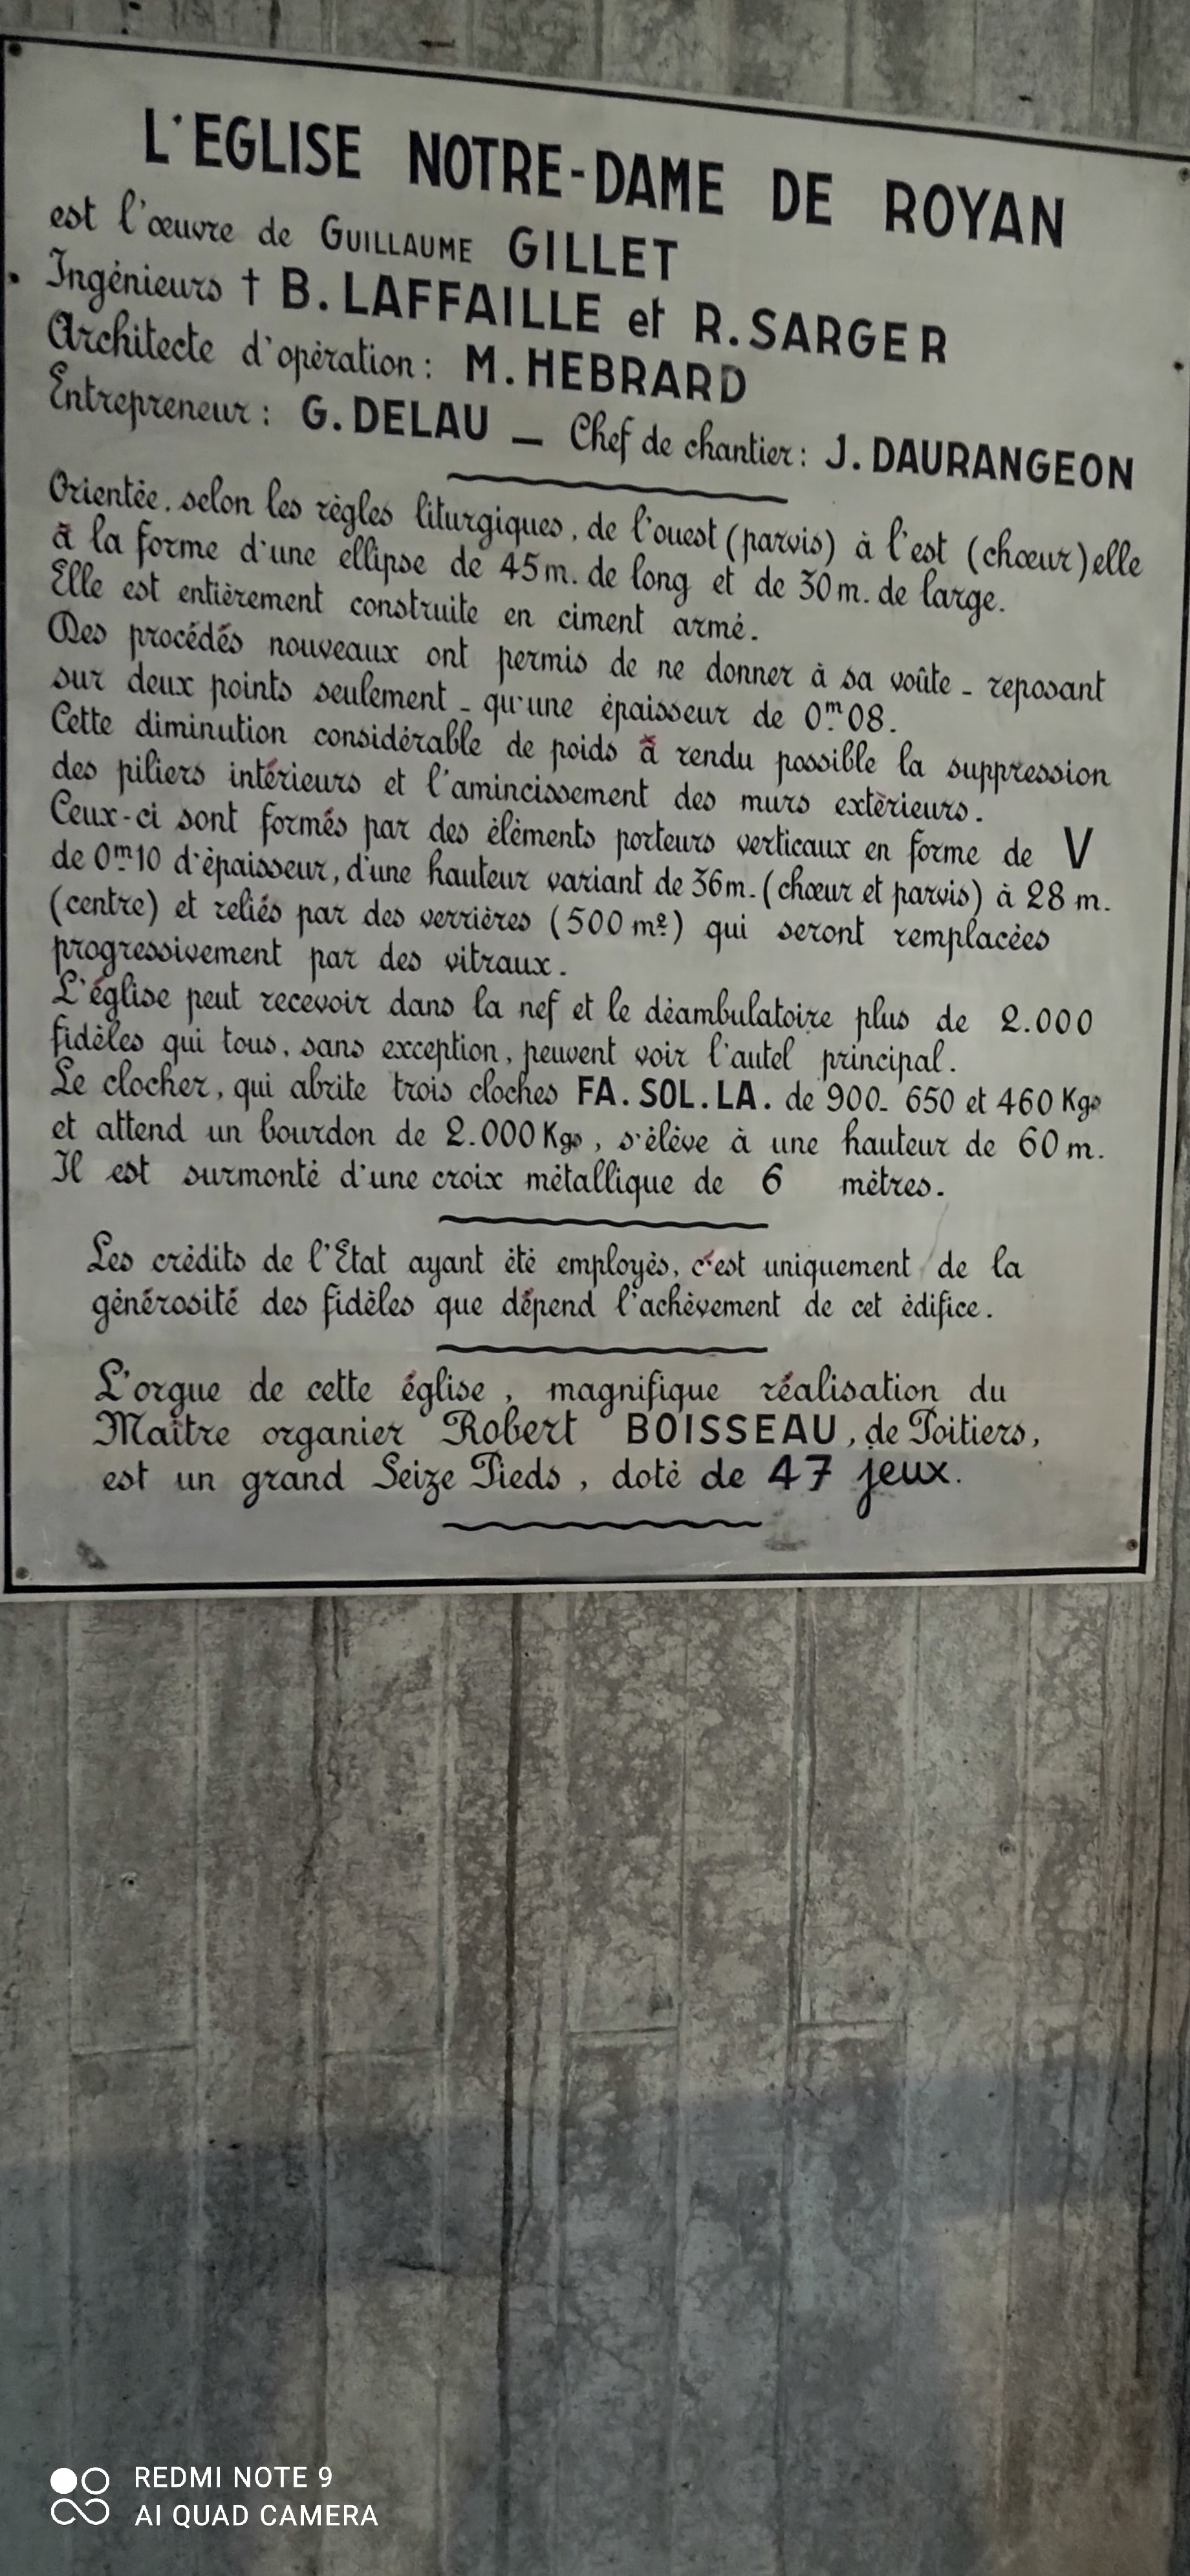 L'EGLISE NOTRE-DAME DE ROYAN
est l'œuvre de GUILLAUME GILLET
Ingénieurs † B. LAFFAILLE et R. SARGER
Architecte d'opération : M. HEBRARD
Entrepreneur : G. DELAU _ Chef de chantier : J. DAURANGEON
Orientée, selon les règles liturgiques, de l'ouest (parvis) à l'est (chœur) elle
à la forme d'une ellipse de 45 m. de long et de 30 m. de large.
Elle est entièrement construite en ciment armé.
Des procédés nouveaux ont permis de ne donner à sa voûte - reposant
sur deux points seulement - qu'une épaisseur de 0m08.
Cette diminution considérable de poids à rendu possible la suppression
des piliers intérieurs et l'amincissement des murs extérieurs.
Ceux-ci sont formés par des éléments porteurs verticaux en forme de V
de 0m10 d'épaisseur, d'une hauteur variant de 36 m. (chœur et parvis) à 28 m.
(centre) et reliés par des verrières (500 m²) qui seront remplacées
progressivement par des vitraux.
L'église peut recevoir dans la nef et le déambulatoire plus de 2.000
fidèles qui tous, sans exception, peuvent voir l'autel principal.
Le clocher, qui abrite trois cloches FA. SOL. LA. de 900- 650 et 460 Kgs
et attend un bourdon de 2.000 Kgs, s'élève à une hauteur de 60 m.
Il est surmonté d'une croix métallique de 6 mètres.
Les crédits de l'Etat ayant été employés, c'est uniquement de la
générosité des fidèles que dépend l'achèvement de cet édifice.
L'orgue de cette église, magnifique réalisation du
Maître organier Robert BOISSEAU, de Poitiers,
est un grand Seize Pieds, doté de 47 jeux.
REDMI NOTE 9
AI QUAD CAMERA